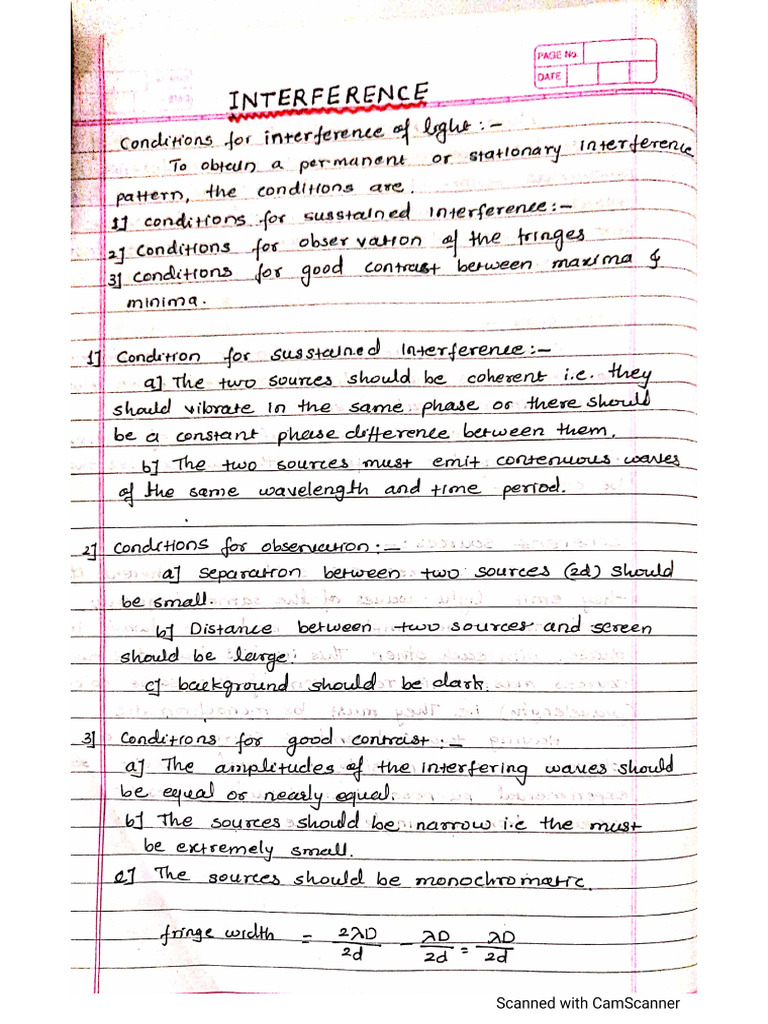 PAGE No.
DATE
INTERFERENCE
Conditions for interference of light :-
To obtain a permanent or stationary interference
pattern, the conditions are.
1] conditions for susstained interference:-
2] Conditions for observation of the fringes
3] Conditions for good contrast between maxima &
minima.
1] Condition for susstained interference:-
a] The two sources should be coherent i.e. they
should vibrate in the same phase or there should
be a constant phase difference between them.
b] The two sources must emit contenuous waves
of the same wavelength and time period.
2] Conditions for observation:-
a] separation between two sources (2d) should
be small.
b] Distance between two sources and screen
should be large.
c] background should be dark.
3] Conditions for good contrast:-
a] The amplitudes of the interfering waves should
be equal or nearly equal.
b] The sources should be narrow i.e the must
be extremely small.
c] The sources should be monochromatic.
fringe width = 2λD/2d - λD/2d = λD/2d
Scanned with CamScanner